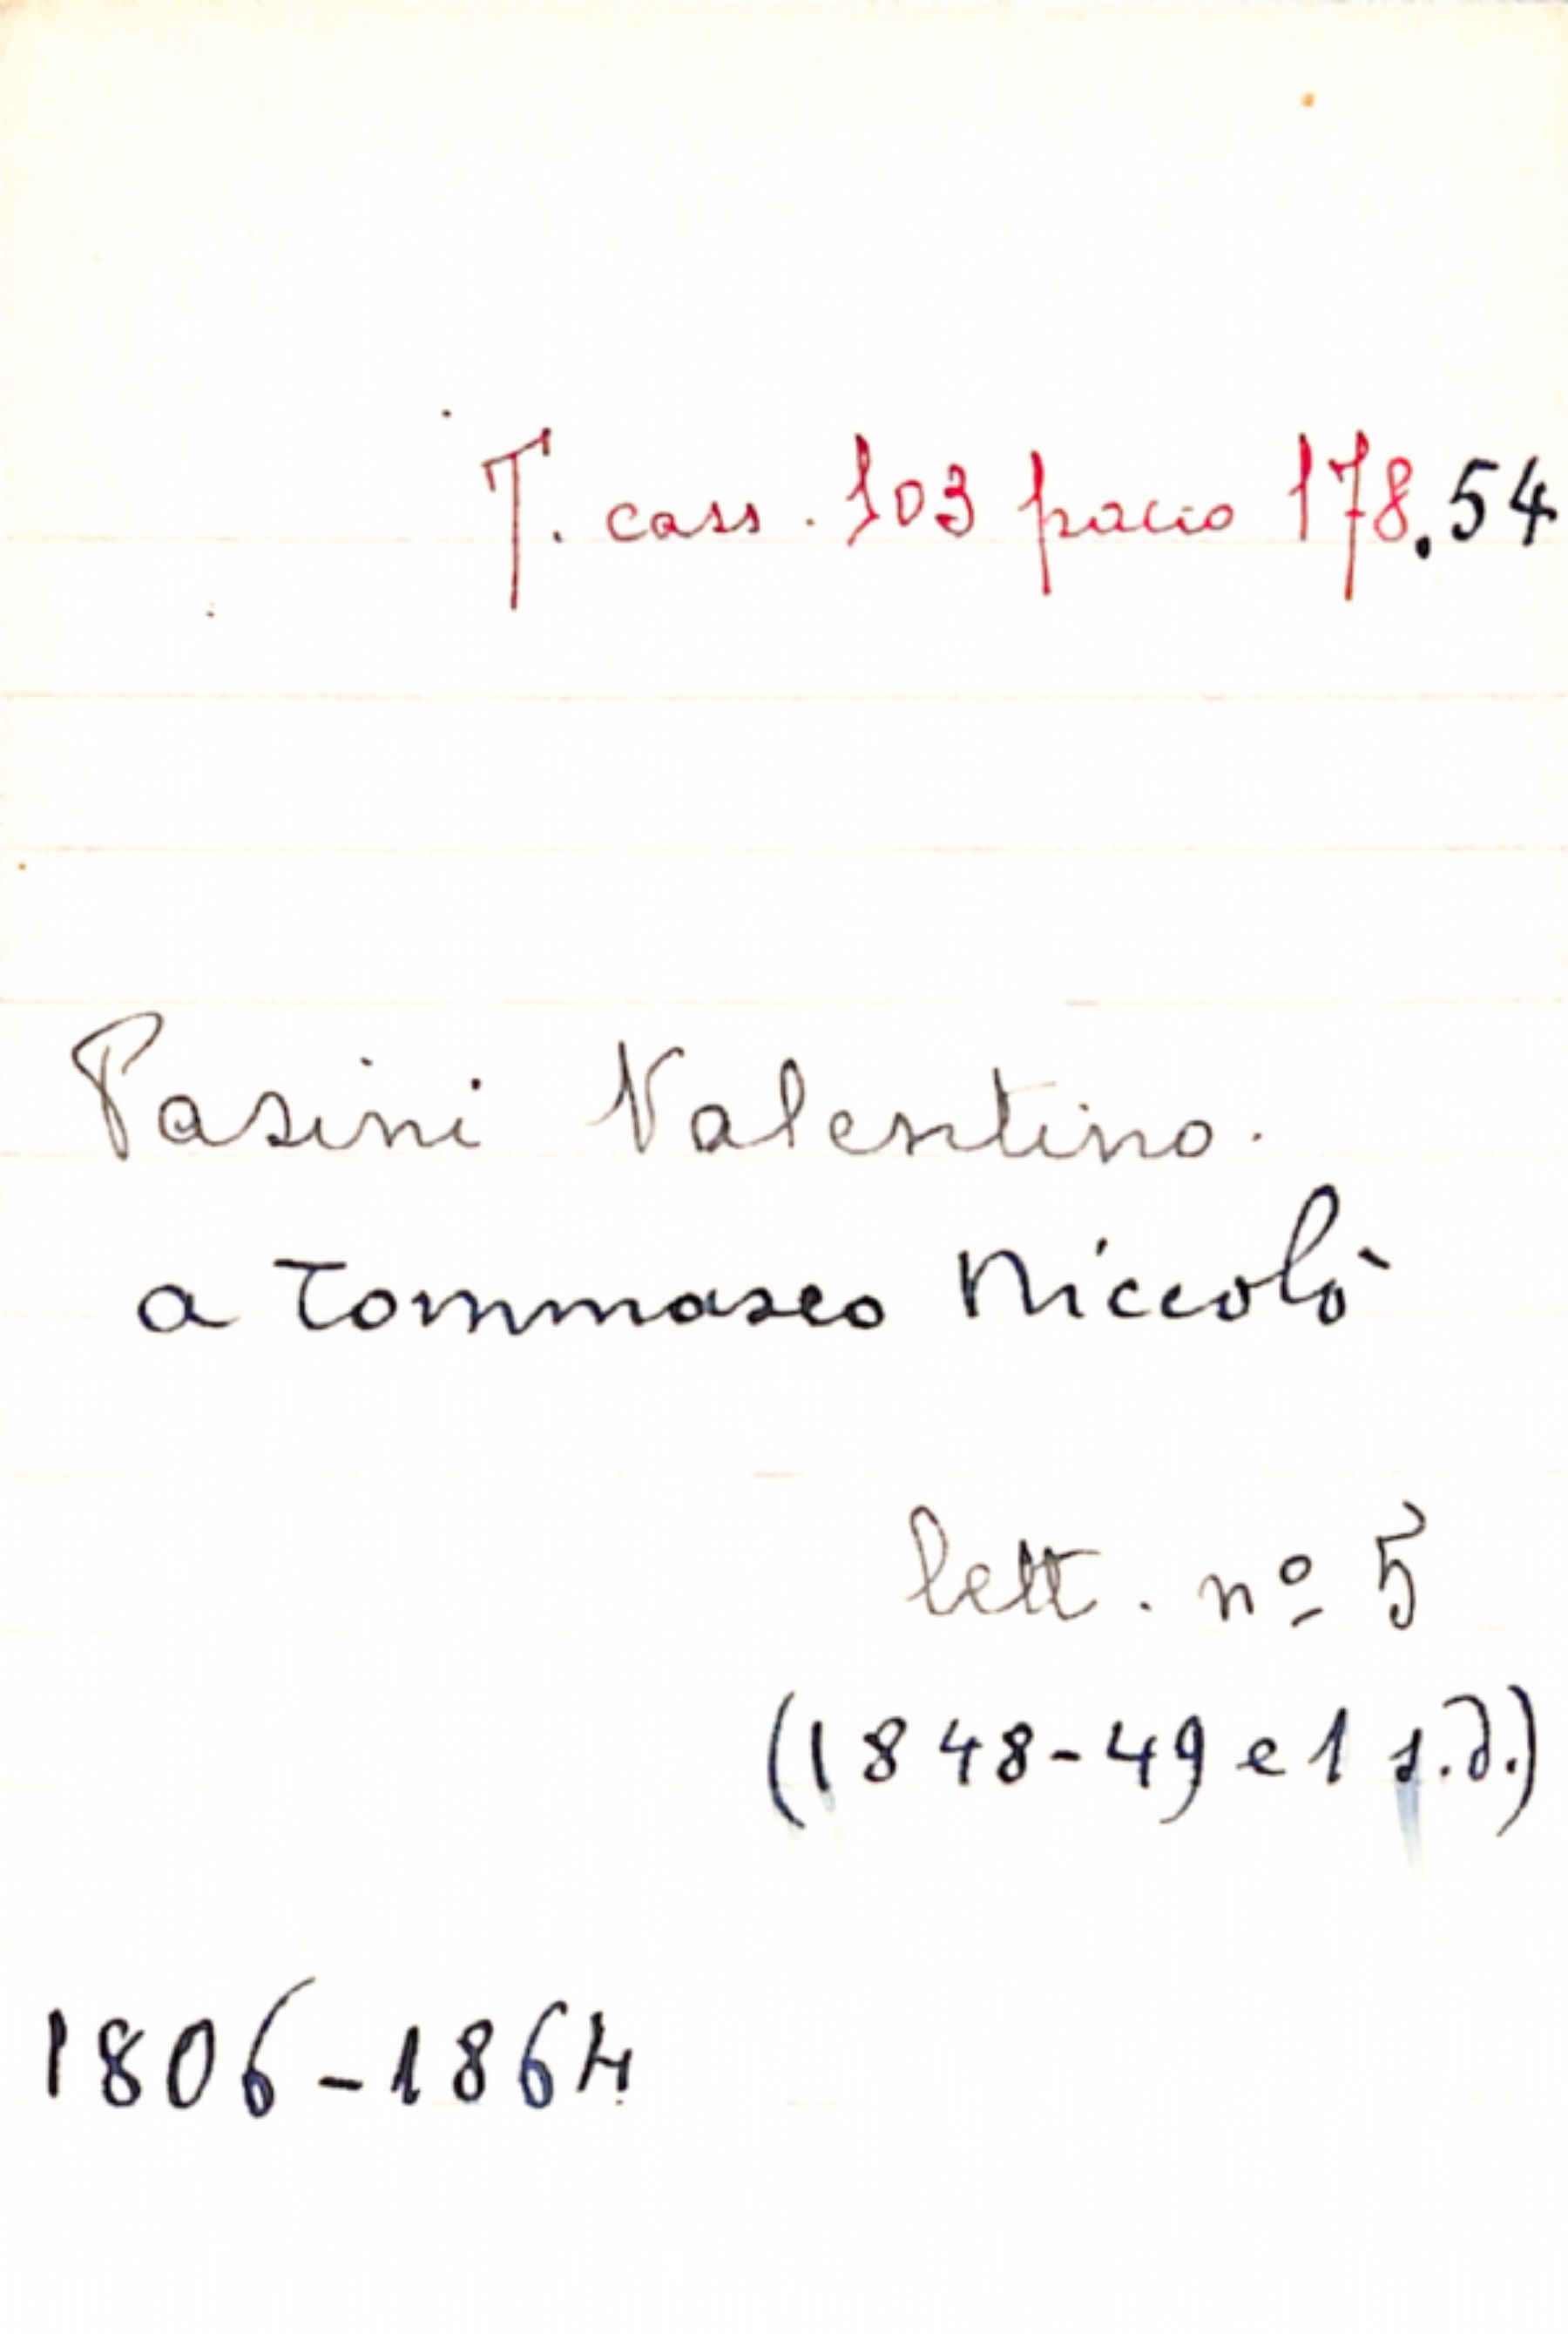 T. cass. 103 pacco 178.54
Pasini Valentino.
a Tommaseo Niccolò
lett. nº 5
(1848-49 e 1 s.d.)
1806-1864